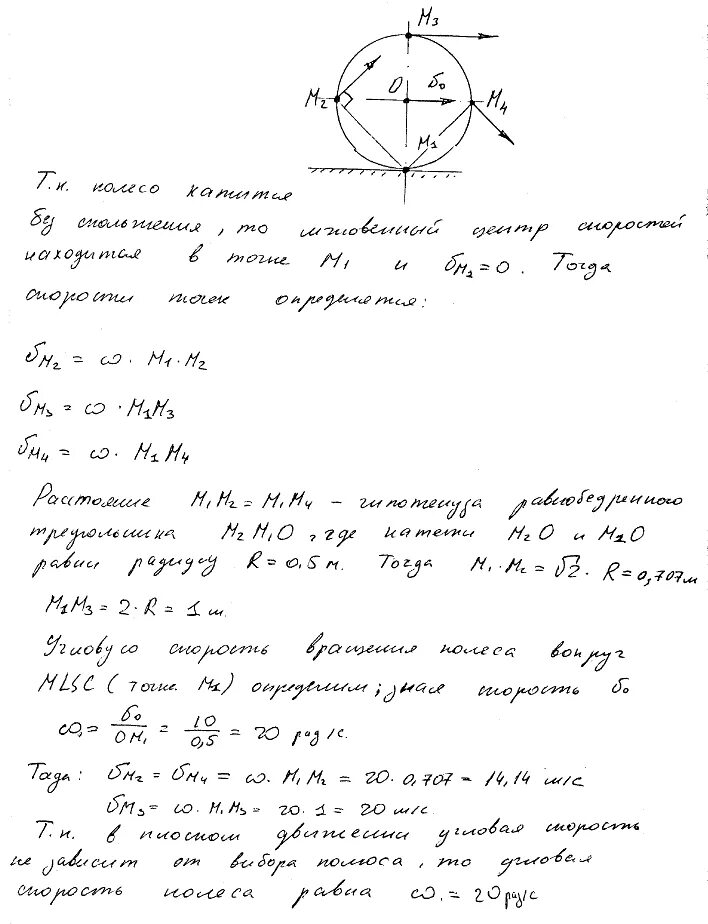 M₃
M₂ O υ₀ M₄
M₁
Т.к. колесо катится
без скольжения, то мгновенный центр скоростей
находится в точке M₁ и υM₁ = 0. Тогда
скорости точек определятся:
υM₂ = ω · M₁ · M₂
υM₃ = ω · M₁M₃
υM₄ = ω · M₁M₄
Расстояние M₁M₂ = M₁M₄ – гипотенуза равнобедренного
треугольника M₂M₁O, где катеты M₂O и M₁O
равны радиусу R = 0,5 м. Тогда M₁ · M₂ = √2 · R = 0,707 м
M₁M₃ = 2 · R = 1 м.
Угловую скорость вращения колеса вокруг
(точк. M₁) определим, зная скорость υ₀
ω = υ₀/OM₁ = 10/0,5 = 20 рад/с.
Тогда: υM₂ = υM₄ = ω · M₁M₂ = 20 · 0,707 = 14,14 м/с
υM₃ = ω · M₁M₃ = 20 · 1 = 20 м/с.
Т.к. в плоском движении угловая скорость
не зависит от выбора полюса, то угловая
скорость колеса равна ω = 20 рад/с